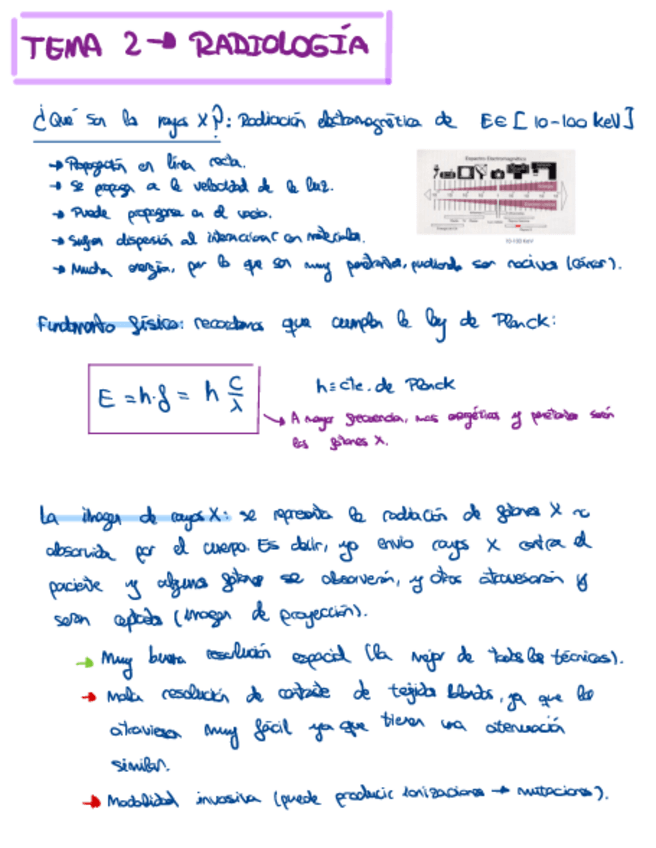 TEMA 2 → RADIOLOGÍA
¿Qué son los rayos X?: Radiación electromagnética de E∈[10-100 keV]
→ Propagación en línea recta.
→ Se propaga a la velocidad de la luz.
→ Puede propagarse en el vacío.
→ Sufren dispersión al interaccionar con materiales.
→ Mucha energía, por lo que son muy penetrantes, pudiendo ser nocivos (cáncer).
Espectro Electromagnético
10-100 KeV
Fundamento físico: recordamos que cumplen la ley de Planck:
E = h·f = h C/λ
h ≡ cte. de Planck
→ A mayor frecuencia, más energéticos y penetrantes serán
los fotones X.
La imagen de rayos X: se representa la radiación de fotones X no
absorvida por el cuerpo. Es decir, yo envío rayos X contra el
paciente y algunos fotones se observerán, y otros atravesarán y
serán captados (imagen de proyección).
→ Muy buena resolución espacial (la mejor de todas las técnicas).
→ Mala resolución de contraste de tejidos blandos, ya que los
atraviesa muy fácil ya que tienen una atenuación
similar.
→ Modalidad invasiva (puede producir ionizaciones → mutaciones).